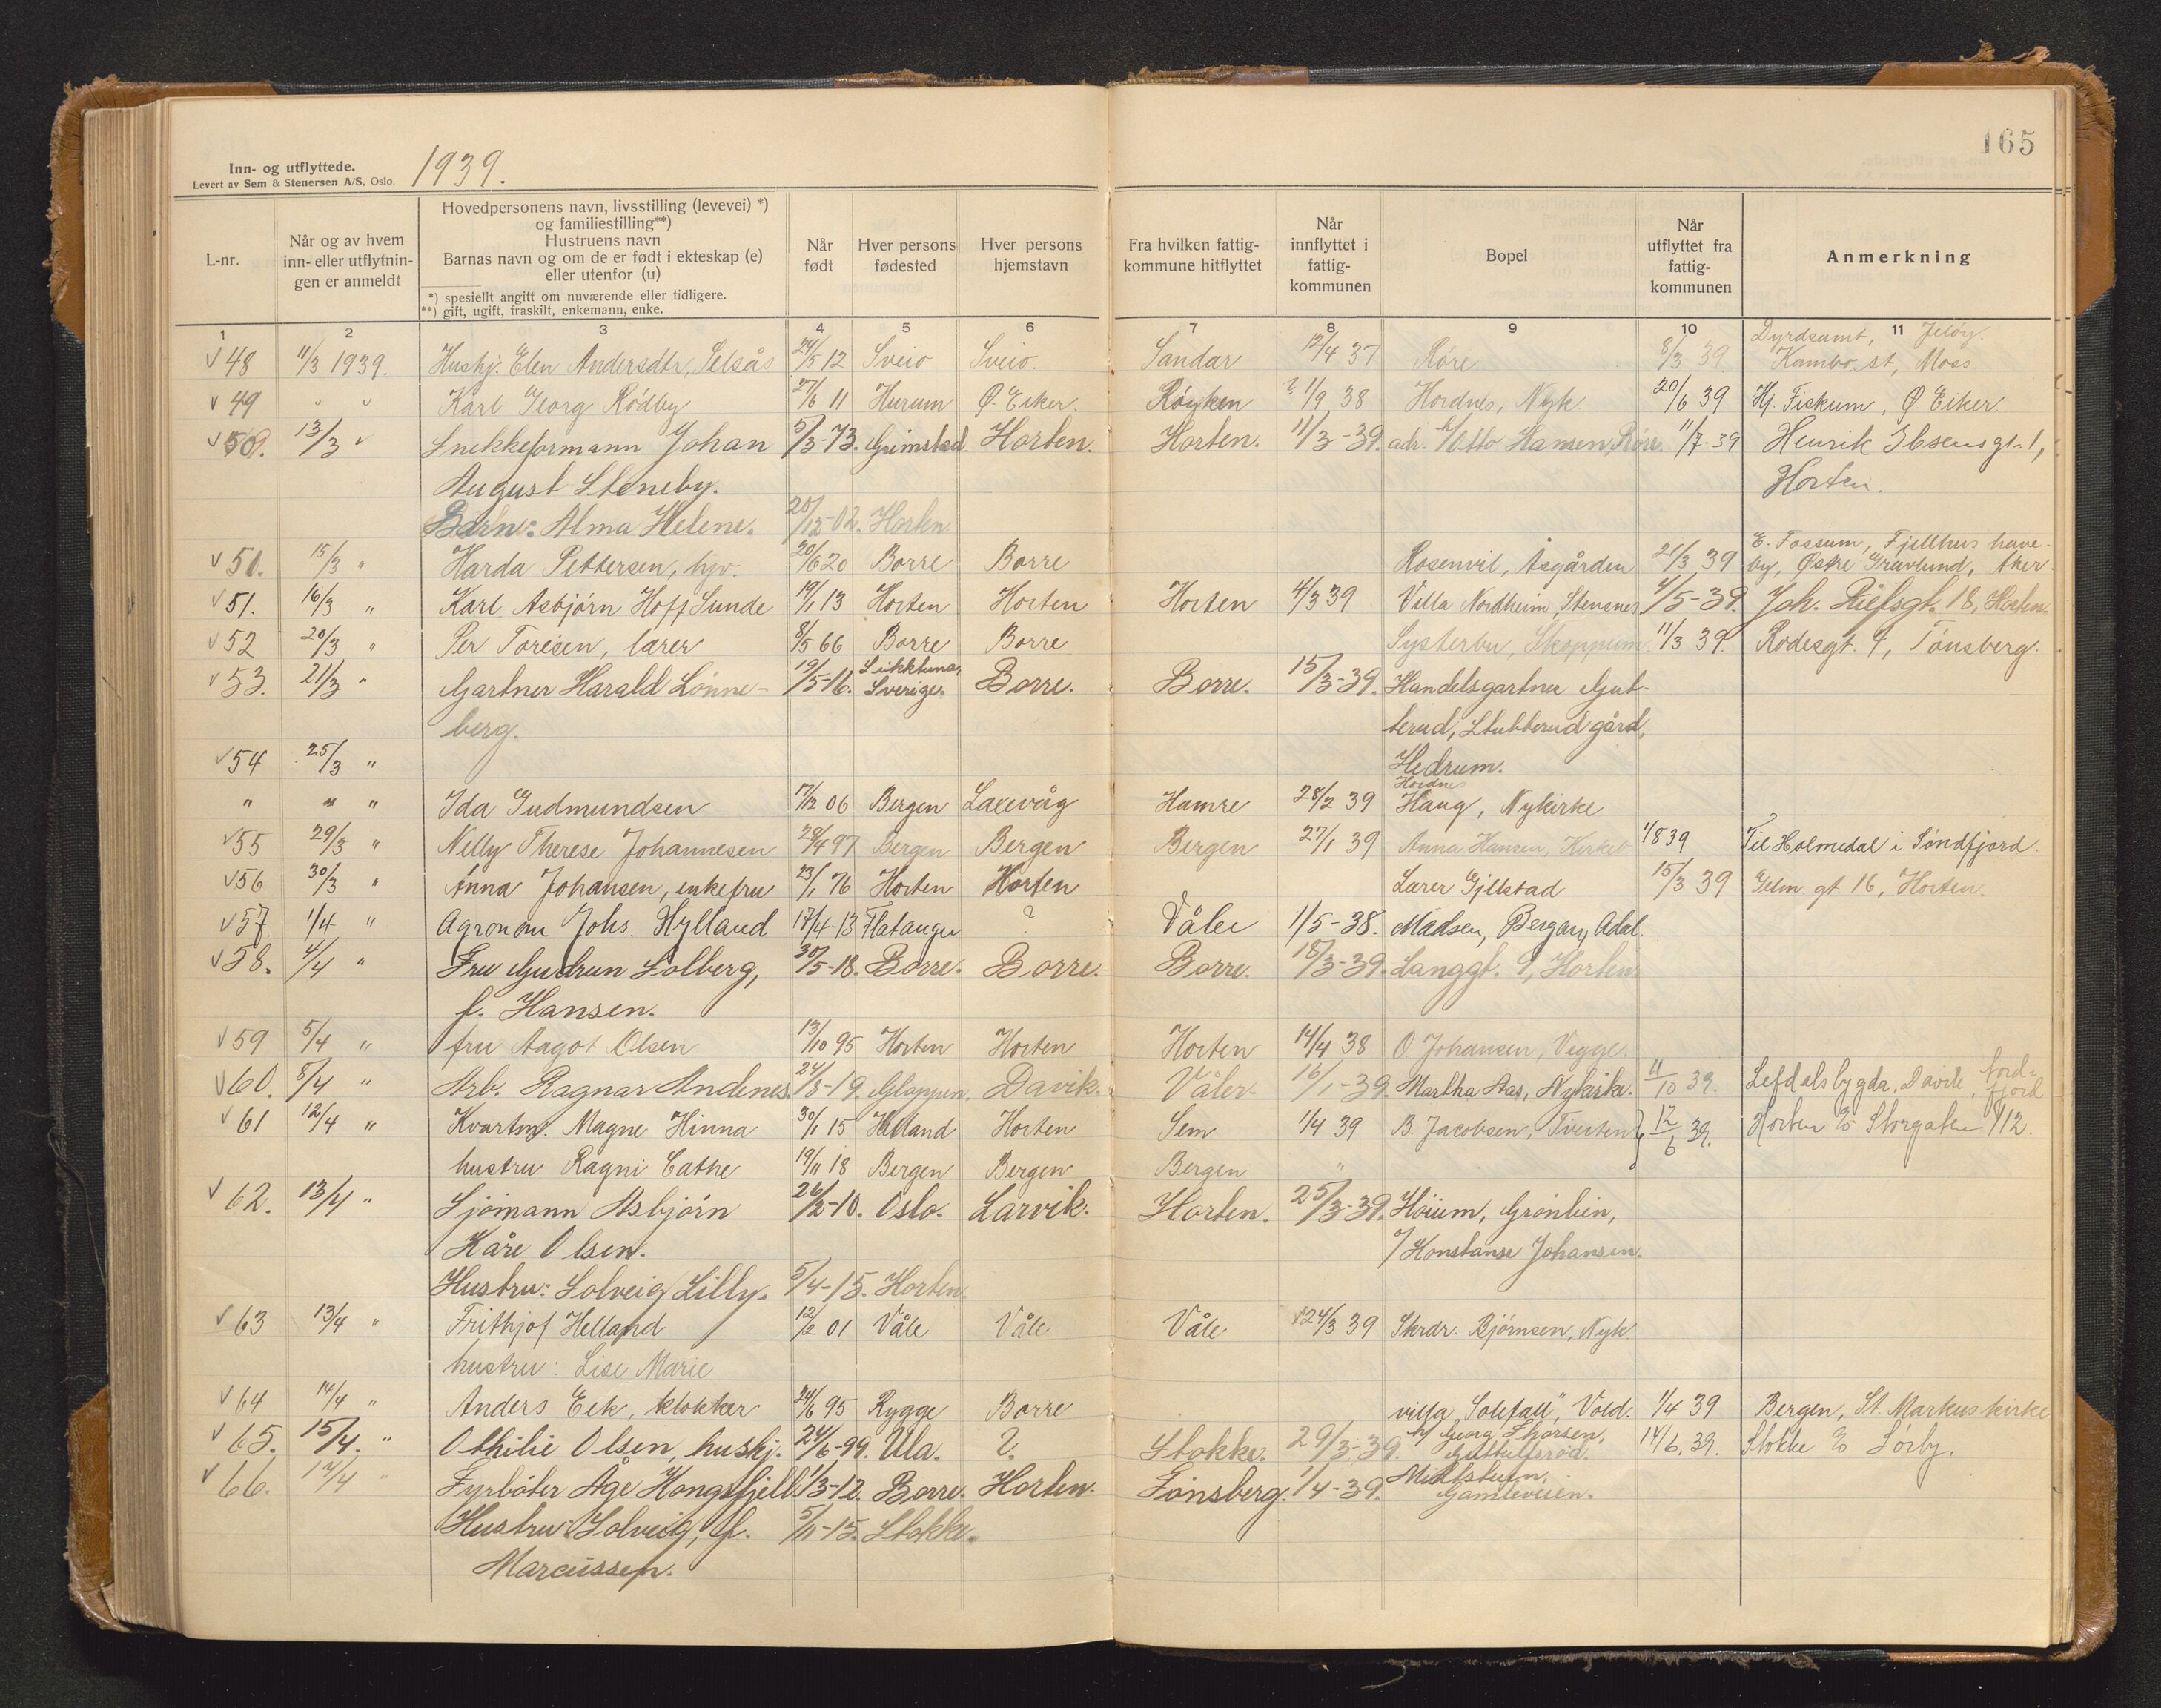 165
Inn- og utflyttede.
Levert av Sem & Stenersen A/S, Oslo.
1939.
L-nr.
Når og av hvem inn- eller utflytnin- gen er anmeldt
Hovedpersonens navn, livsstilling (levevei) *)
og familiestilling**)
Hustruens navn
Barnas navn og om de er født i ekteskap (e)
eller utenfor (u)
*) spesiellt angitt om nuværende eller tidligere.
**) gift, ugift, fraskilt, enkemann, enke.
Når født
Hver persons fødested
Hver persons hjemstavn
Fra hvilken fattig- kommune hitflyttet
Når innflyttet i fattig- kommunen
Bopel
Når utflyttet fra fattig- kommunen
Anmerkning
1 2 3 4 5 6 7 8 9 10 11
Jeløy.
√ 48 11/3 1939. Hushj. Elen Andersdtr. Selsås 24/5 12 Sveio Sveio. Sandar 12/4 37 Røre 8/3 39 Kambo st, Moss
√ 49 " " Karl Georg Rødby 27/6 11 Hurum Ø. Eiker. Røyken ? 1/9 38 Hordnes, Nyk 20/6 39 Hj. Fiskum, Ø. Eiker
√ 50. 13/3 " Snekkeformann Johan 5/3-73. Grimstad. Horten. Horten. 11/3-39. adr. Otto Hansen, Røre. 11/7-39 Henrik Ibsensgt. 1,
August Steneby. Horten.
Barn: Alma Helene. 28/12-02. Horten
E. Fossum, Fjellhus have-
√ 51. 15/3 " Harda Pettersen, hjv. 20/6 20 Borre Borre Rosenvil, Åsgården 21/3 39 by, Østre Gravlund, Aker
√ 51. 16/3 " Karl Asbjørn Hoff Sunde 19/1 13 Horten Horten Horten 4/3 39 Villa Nordheim, Stensnes 4/5-39. Joh. Riefsgt. 18, Horten.
√ 52 20/3 " Per Toresen, lærer 8/5 66 Borre Borre Systerbu, Skoppum 11/3 39. Rodesgt. 9, Tønsberg.
√ 53. 21/3 " Gartner Harald Lønne- 19/5-16. Sverige. Borre. Borre. 15/3-39. Handelsgartner Gut-
berg. terud, Stubberud gård,
√ 54 25/3 " Hedrum.
Hordnes
" " " Ida Gudmundsen 7/12 06 Bergen Laxevåg Hamre 28/2 39 Haug, Nykirke
√ 55 29/3 " Nelly Therese Johannesen 28/4 97 Bergen Bergen Bergen 27/1 39 Anna Hansen, Kirkeb 1/8 39 Til Holmedal i Søndfjord.
√ 56 30/3 " Anna Johansen, enkefru 23/1 76 Horten Horten Lærer Gjelstad 15/3 39 gt. 16, Horten.
√ 57. 1/4 " Agronom Johs. Hylland 17/4-13 ? Våler 1/5-38. Madsen, Bergan, Adal.
√ 58. 4/4 " Fru Gudrun Solberg, 30/5-18. Borre. Borre. Borre. 18/3-39. Langgt. 9, Horten.
f. Hansen.
√ 59 5/4 " fru Aagot Olsen 13/10 95 Horten Horten Horten 14/4 38 O. Johansen, Vegge.
√ 60. 8/4 " Arb. Ragnar Andenes. 24/8-19. Davik. Våler. 16/1-39. Martha Aas, Nykirke. 11/10 39. Lefdalsbygda, Davik, Nord-
fjord
√ 61 12/4 " Kvartm. Magne Hinna 30/1 15 Hetland Horten Sem 1/4 39 B. Jacobsen, Tveiten 12/6 39. Horten Storgaten 112.
hustru Ragni Cathe 19/11 18 Bergen Bergen Bergen "
√ 62. 13/4 " Sjømann Asbjørn 26/2-10. Oslo. Larvik. Horten. 25/3-39. Høium, Grønlien,
Kåre Olsen. Konstanse Johansen.
Hustru: Solveig Lilly. 5/4-15. Horten.
√ 63 13/4 " Frithjof Helland 12/2 01 Våle Våle Våle √24/3 39 Skrdr. Bjørnsen, Nyk
hustru: Lise Marie
√ 64 14/4 " Anders Eek, klokker 24/6 95 Rygge Borre villa "Solefall", Vold. 1/4 39 Bergen, St. Markus kirke
√ 65. 15/4. " Othilie Olsen, hushj. 24/6-99. Ula. ?. Stokke. 29/3-39. Georg Thorsen, 14/6. 39. Stokke Sørby.
√ 66. 17/4 " Fyrbøter Åge Hongsfjell. 1/3-12. Borre. Horten. Tønsberg. 1/4-39. Midtstuen,
Gamleveien.
Hustru: Solveig, f. 5/11-15. Stokke.
Marcussen.